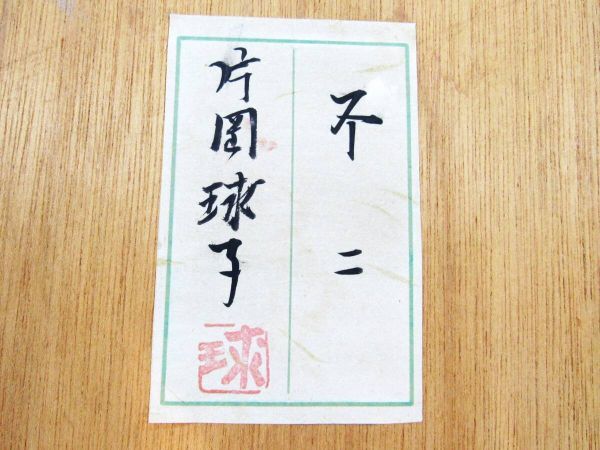 不二
片岡球子
球